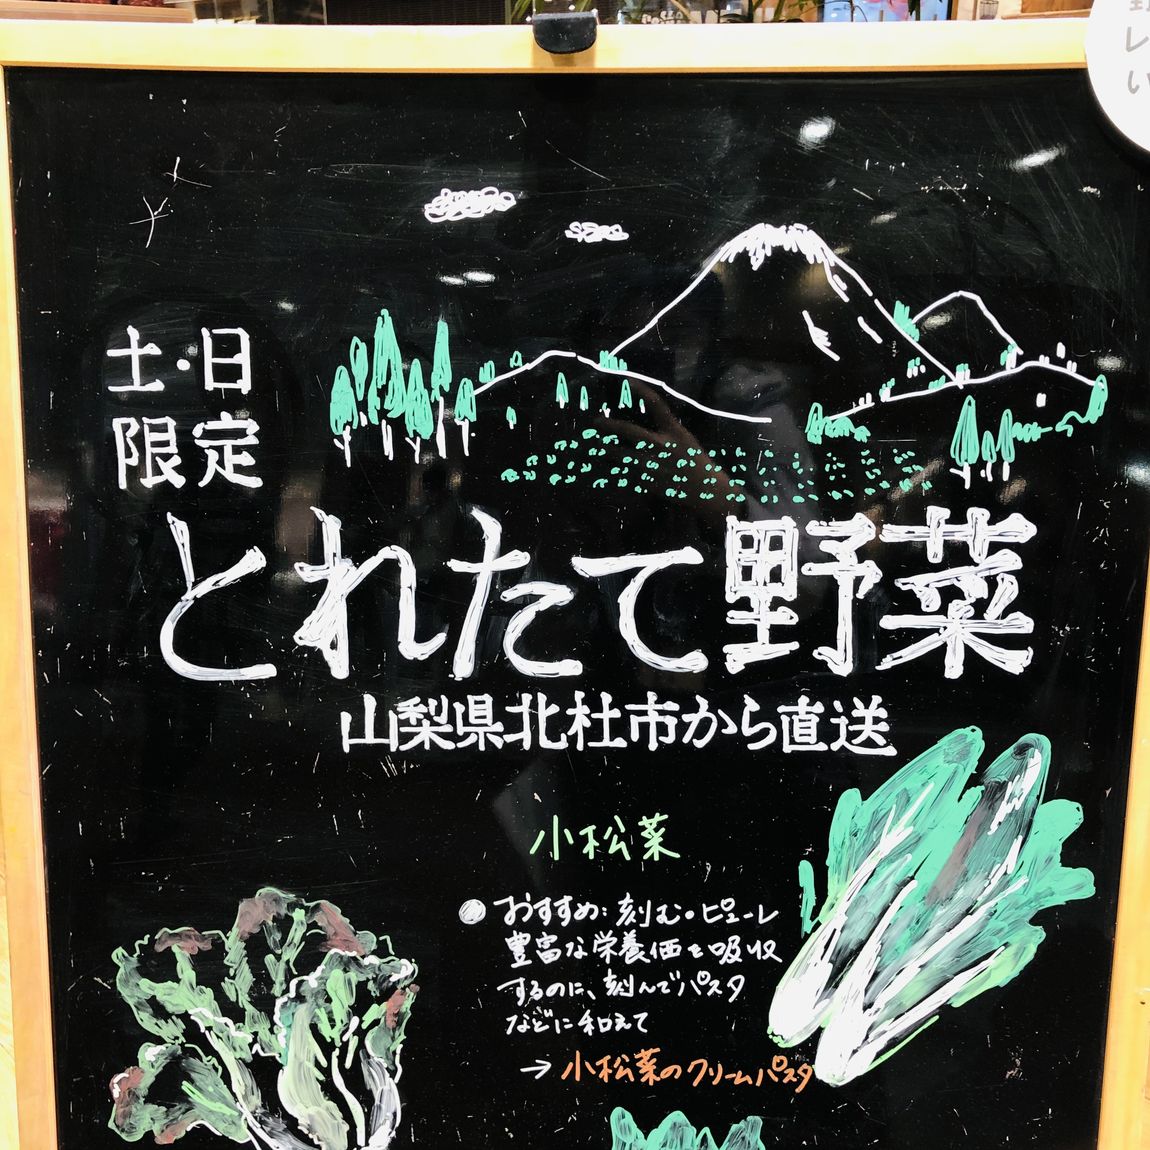 土・日
限定
とれたて野菜
山梨県北杜市から直送
小松菜
●おすすめ:刻む・ピューレ
豊富な栄養価を吸収
するのに、刻んでパスタ
などに和えて
→小松菜のクリームパスタ
レ
い